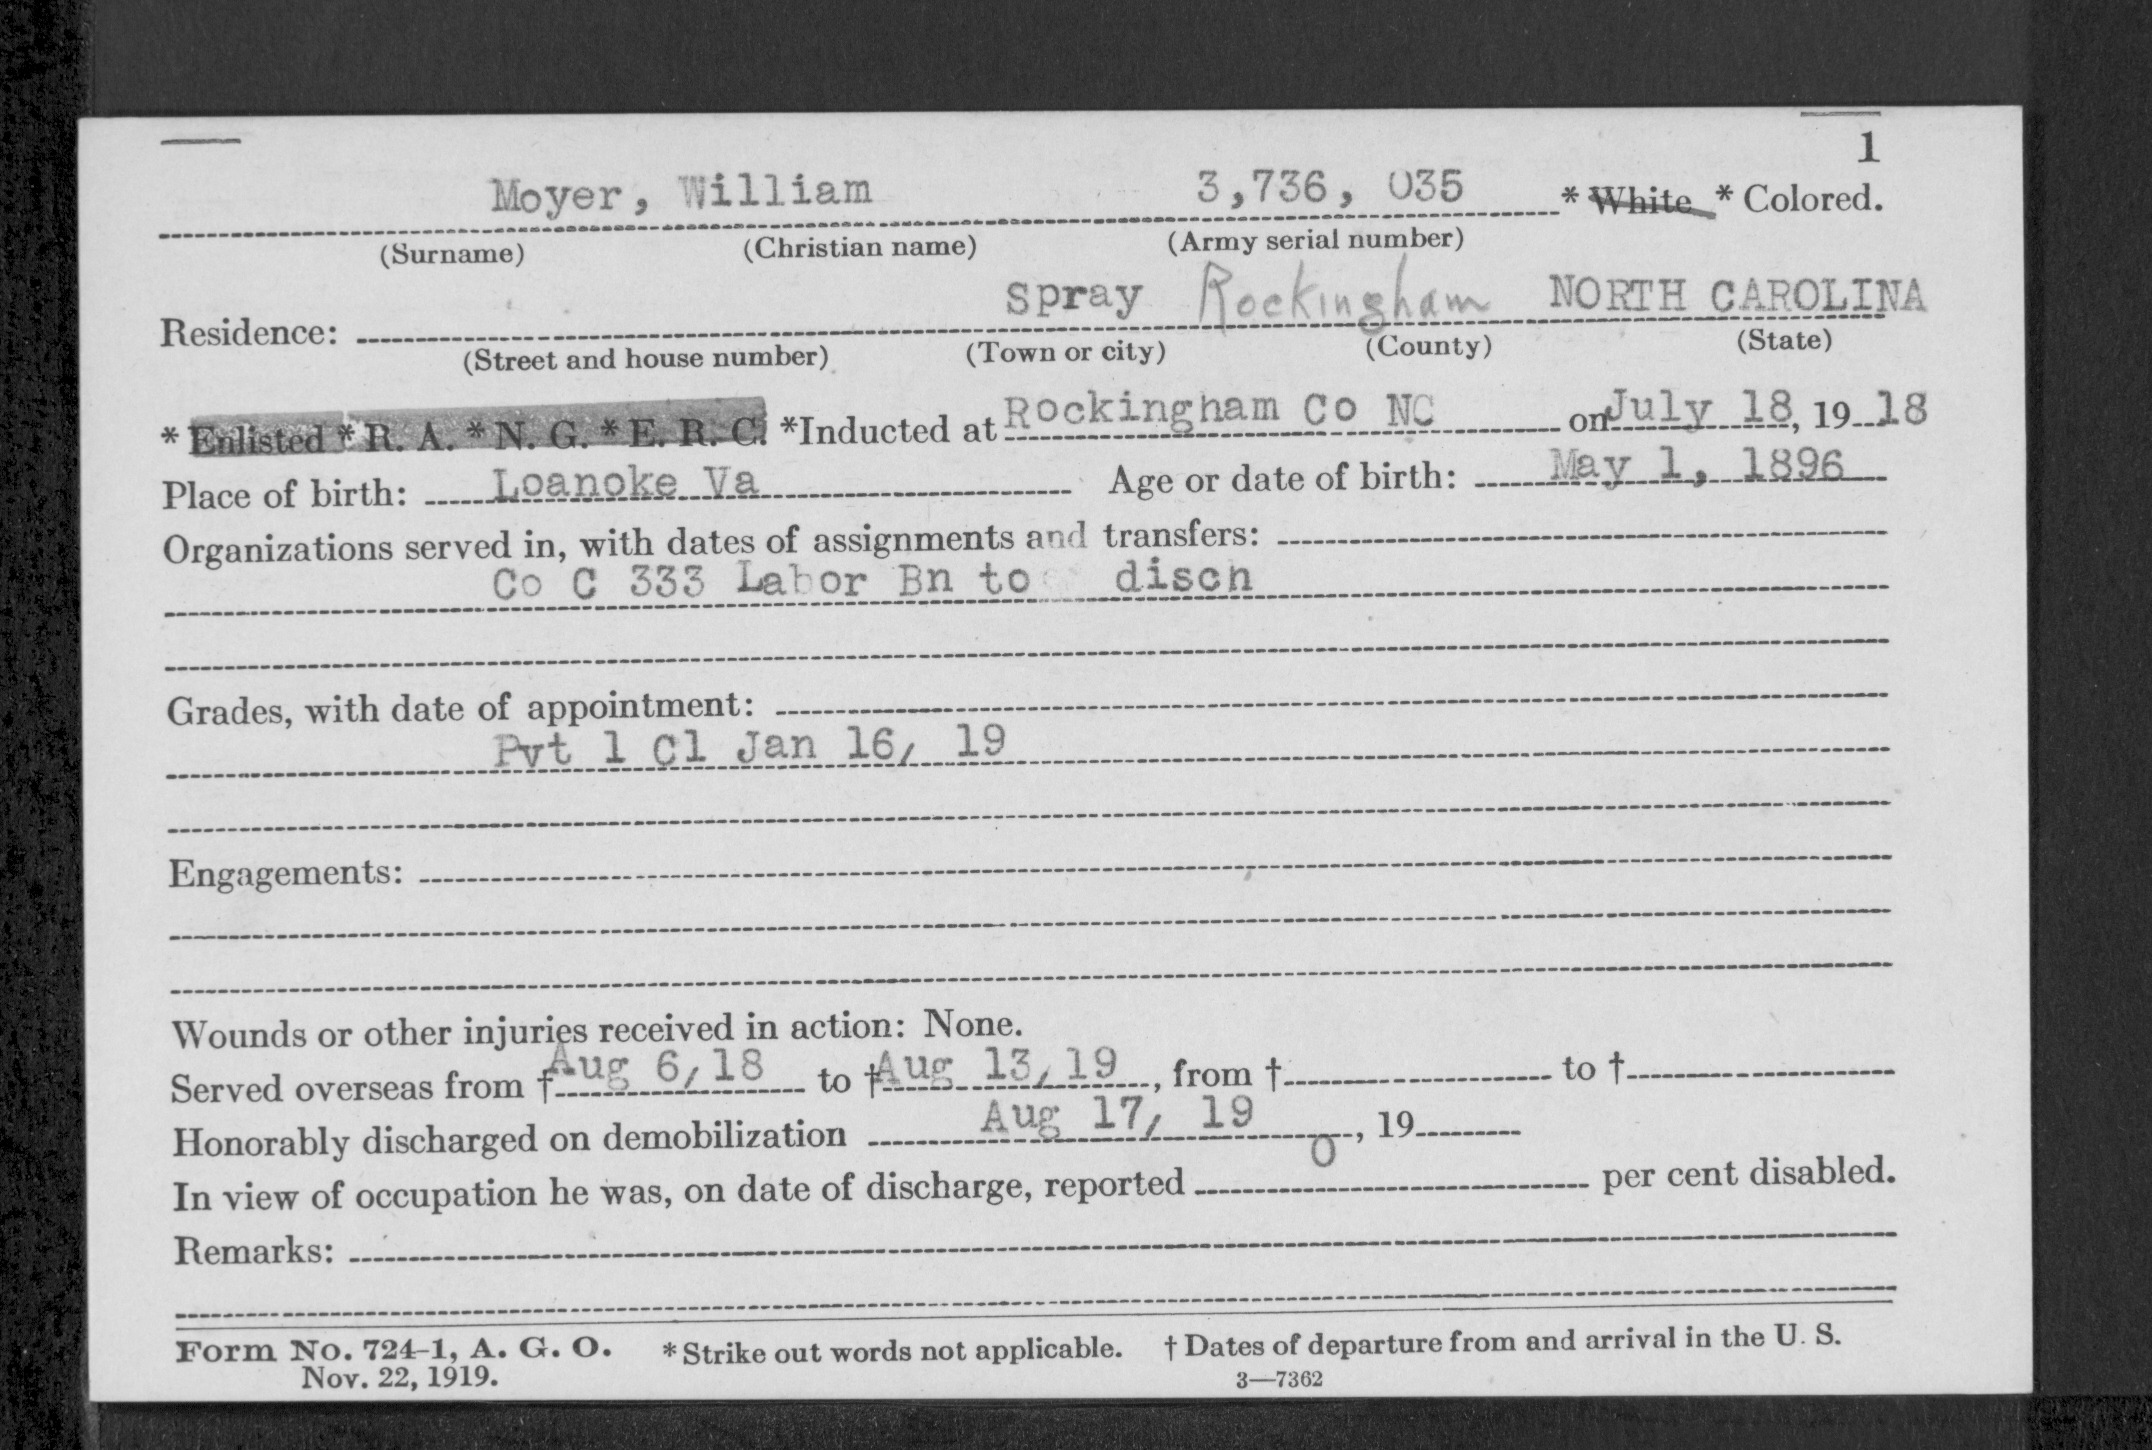 1
Moyer, William 3,736, 035 * White * Colored.
(Surname) (Christian name) (Army serial number)
Residence: Spray Rockingham NORTH CAROLINA
(Street and house number) (Town or city) (County) (State)
* Enlisted * R. A. * N. G. * E. R. C. *Inducted at Rockingham Co NC on July 18, 19 18
Place of birth: Loanoke Va Age or date of birth: May 1, 1896
Organizations served in, with dates of assignments and transfers:
Co C 333 Labor Bn to disch
Grades, with date of appointment:
Pvt 1 Cl Jan 16, 19
Engagements:
Wounds or other injuries received in action: None.
Served overseas from † Aug 6, 18 to † Aug 13, 19, from † to †
Honorably discharged on demobilization Aug 17, 19, 19
In view of occupation he was, on date of discharge, reported 0 per cent disabled.
Remarks:
Form No. 724-1, A. G. O. * Strike out words not applicable. † Dates of departure from and arrival in the U. S.
Nov. 22, 1919. 3—7362